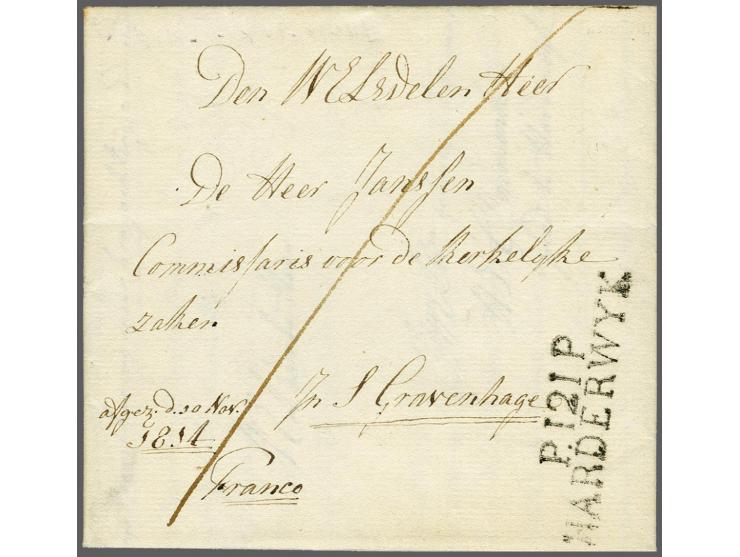 Den WELEdelen Heer
De Heer Janssen
Commissaris voor de Kerkelyke
zaken
afgez. d. 10 Nov.
1814
In S Gravenhage
Franco
P.121.P.
HARDERWYK